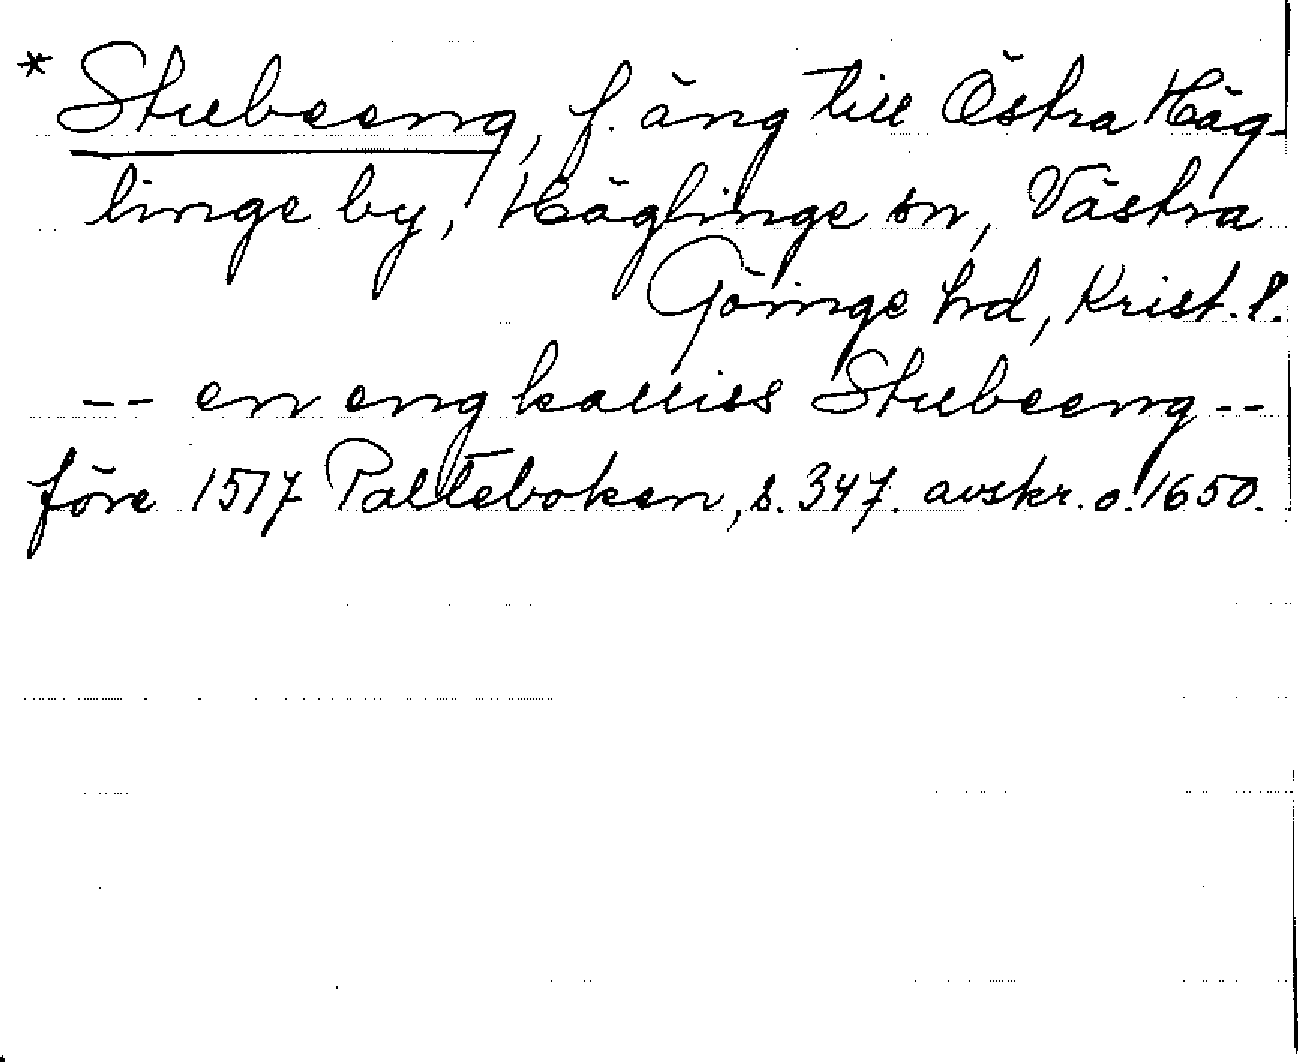 * Stubeeng, f. äng till Östra Häg-
linge by, Häglinge sn, Västra
Göinge hd, Krist. l.
-- en eng kalliss Stubeeng --
före 1577 Palteboken, s. 347. avskr. o. 1650.